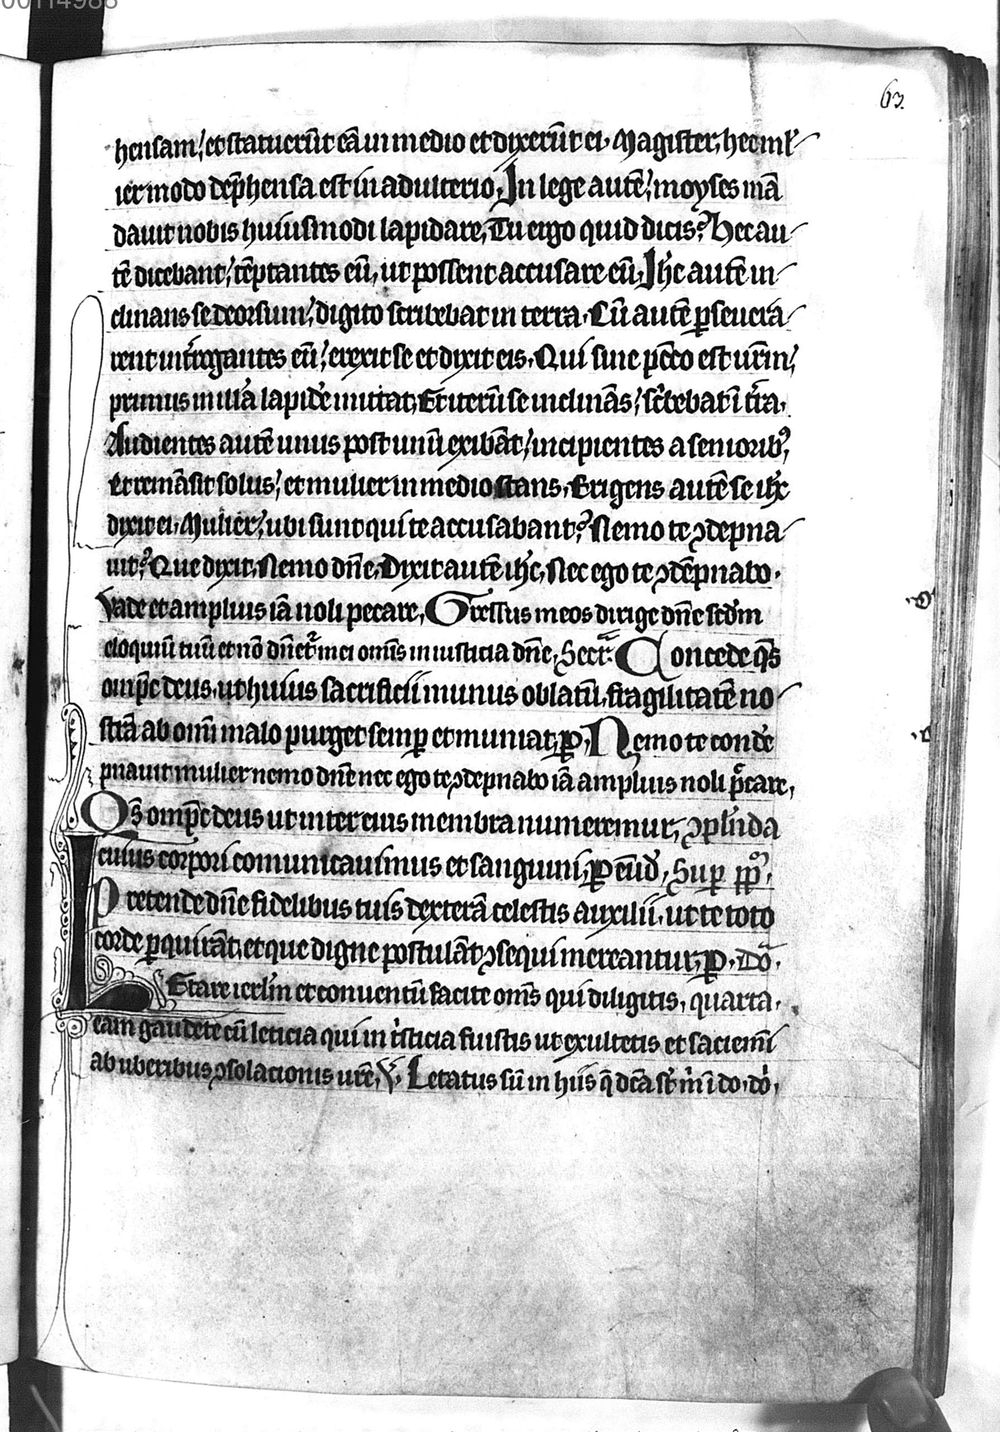 00114988
63.
hensam, et statuerūt eā in medio et dixerūt ei. Magister, hec ml̕
ier modo dep̄hensa est in adulterio. In lege autē moyses mā
davit nobis huiusmodi lapidare. Tu ergo quid dicis? Hec au
tē dicebant, tēptantes eū, ut possent accusare eū. Ih̄c autē in
clinans se deorsum, digito scribebat in terra. Cū autē ꝑsevera
rent int̄rogantes eū, erexit se et dixit eis. Qui sine pccō est urm̄,
primus in illā lapidē mittat. Et iterū se inclinās, sc̄bebat ī t̄ra.
Audientes autē unus post unū exibāt, incipientes a senioribꝰ,
et remāsit solus, et mulier in medio stans. Erigens autē se ih̄c
dixit ei. Mulier, ubi sunt qui te accusabant? Nemo te ꝯdepna
uit? Que dixit. Nemo dn̄e. Dixit autē ih̄c. Nec ego te ꝯdēpnabo.
Vade et amplius iā noli peccare. Gressus meos dirige dn̄e scd̄m
eloquiū tuū et nō dn̄et̄ mei om̄is iniusticia dn̄e. Secr̄. Concede qs̄
omp̄c deus, ut huius sacrificii munus oblatū, fragilitatē no
strā ab om̄i malo purget semꝑ et muniat. ꝑ. Nemo te conde
pnavit mulier nemo dn̄e nec ego te ꝯdepnabo iā amplius noli p̄care.
Qs̄ omp̄c deus ut inter eius membra numeremur, ꝯpl̄nda
cuius corpori comunicauimus et sanguini. ꝑ eūd̄. Suꝑ pp̄l̄m.
Pretende dn̄e fidelibus tuis dexterā celestis auxilii, ut te toto
corde ꝑquirāt, et que digne postulāt ꝯsequi mereantur. ꝑ. Dō.
Letare ierl̄m et conventū facite om̄s qui diligitis, quarta.
eam gaudete cū leticia qui in t̄sticia fuistis ut exultetis et saciem̄i
ab uberibus ꝯsolacionis ur̄e. V̄. Letatus sū in hiis q̄ dc̄a st̄ m̄ i do. dō.